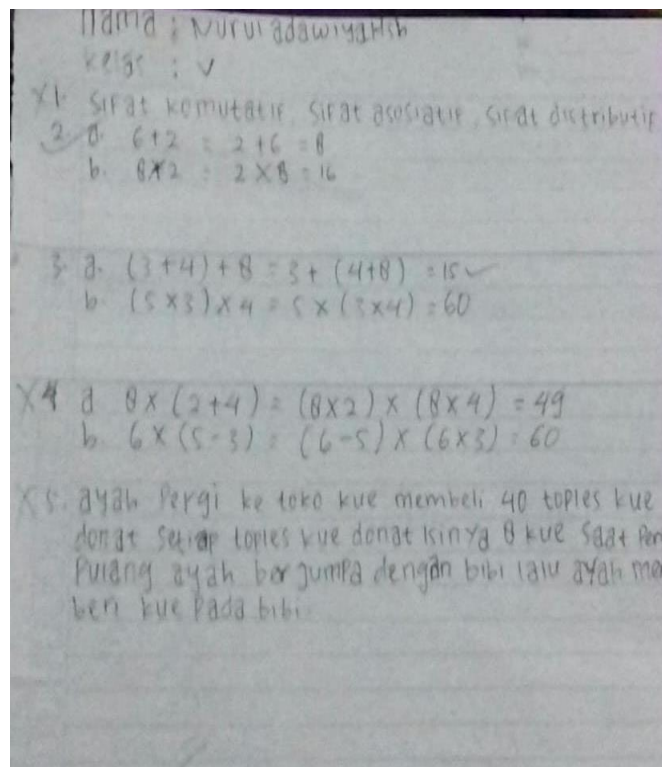 Nama : Nurul adawiyahsh
Kelas : V
X1. Sifat komutatif, sifat asosiatif, sifat distributif
2. a. 6+2 = 2+6 = 8
b. 8x2 = 2x8 = 16
3. a. (3+4)+8 = 3+(4+8) = 15 ✓
b. (5x3)x4 = 5x(3x4) = 60
X4 a 8x(2+4) = (8x2)x(8x4) = 49
b. 6x(5-3) = (6-5)x(6x3) = 60
X5. ayah Pergi ke toko kue membeli 40 toples kue
donat setiap toples kue donat isinya 8 kue saat Per
Pulang ayah berjumpa dengan bibi lalu ayah me
beri kue Pada bibi.